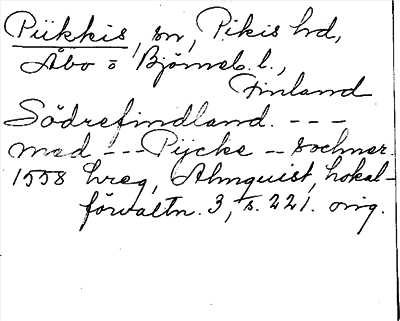 Piikkis, sn, Pikis hd,
Åbo o Björneb. l.,
Finland
Södrefindland. - - -
med - - - Pijcke - sochner.
1558 hreg, Almquist, lokal-
förvaltn. 3, s. 221. orig.